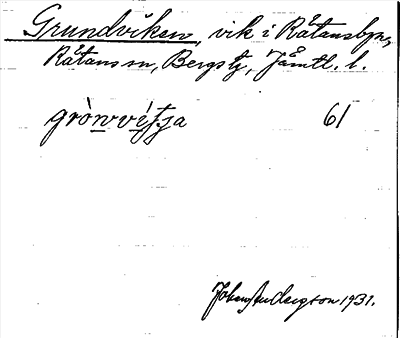 Grundviken, vik i Råtansbyn,
Råtans sn, Bergs tg, Jämtl. l.
grònvét̮t̮ja 61
Johan Andersson 1931.